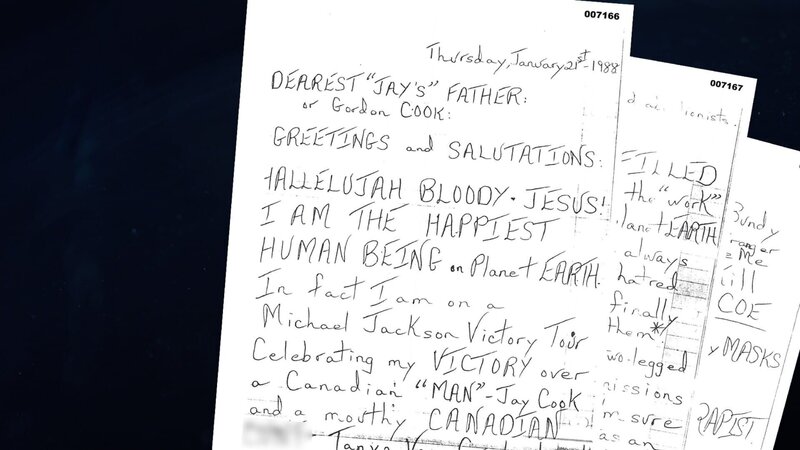 007166
Thursday, January 21st - 1988
DEAREST "JAY'S" FATHER:
or Gordon COOK:
GREETINGS and SALUTATIONS:
HALLELUJAH BLOODY. JESUS!
I AM THE HAPPIEST
HUMAN BEING on Planet EARTH.
In fact I am on a
Michael Jackson Victory Tour
Celebrating my VICTORY over
a Canadian "MAN" - Jay Cook
and a mouthy CANADIAN
Tanya Van
007167
FILLED
the "work"
Planet EARTH
always
hatred
finally
them*
two-legged
missions
I'm sure
as an
Bundy
ranger
Me
ill
COE
y MASKS
RAPIST